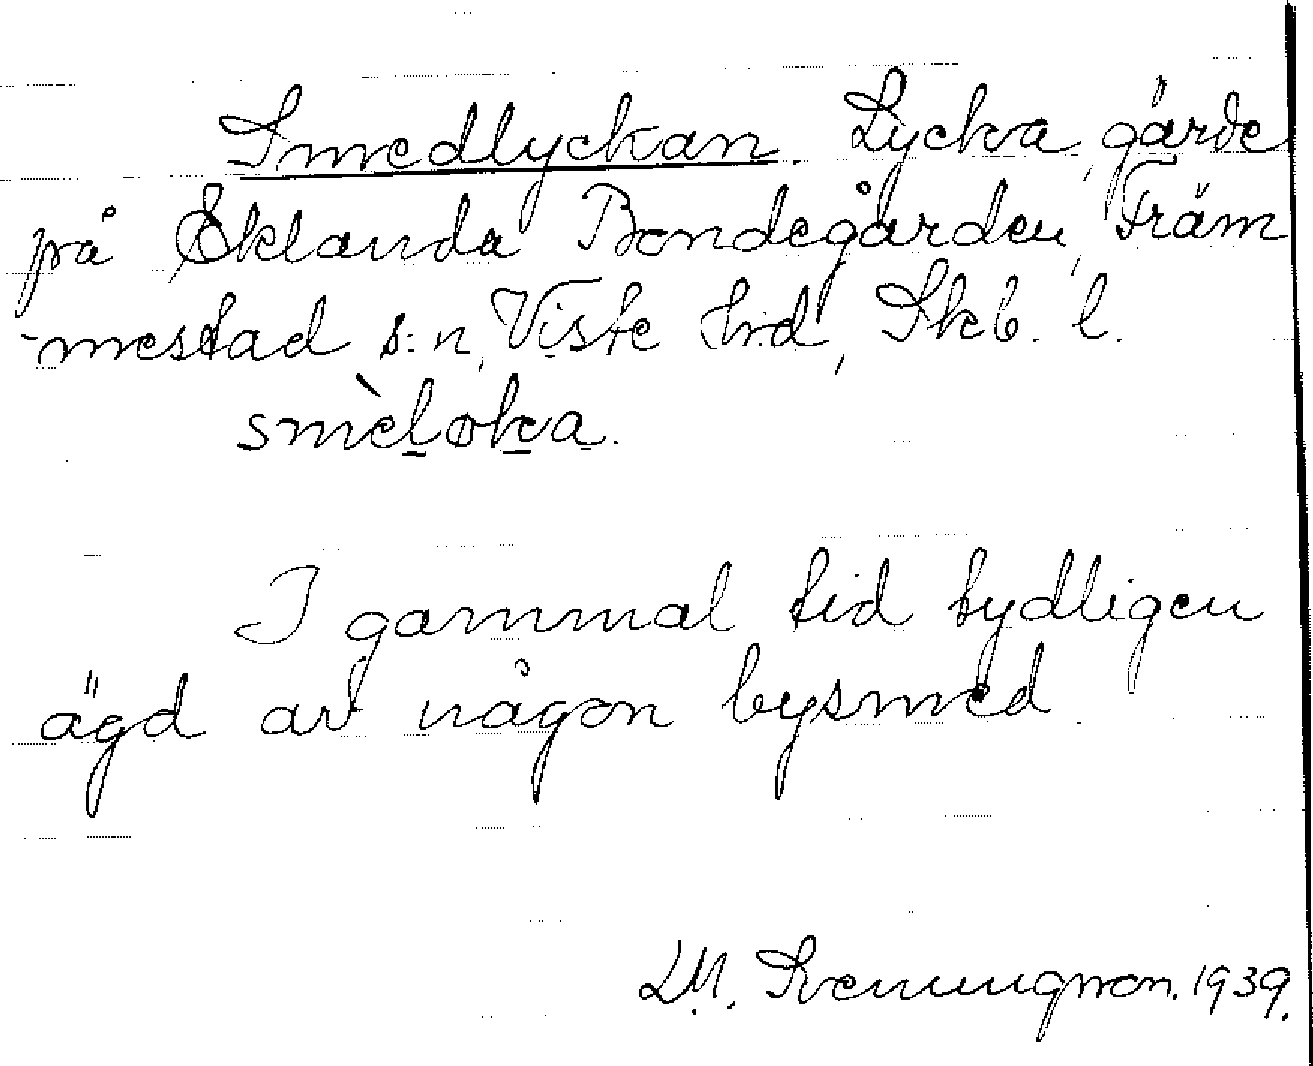 Smedlyckan. Lycka, gärde
på Eklanda Bondegården, Främ
-mestad s:n, Viste hrd, Skb. l.
smèløka.
I gammal tid tydligen
ägd av någon bysmed.
1939.